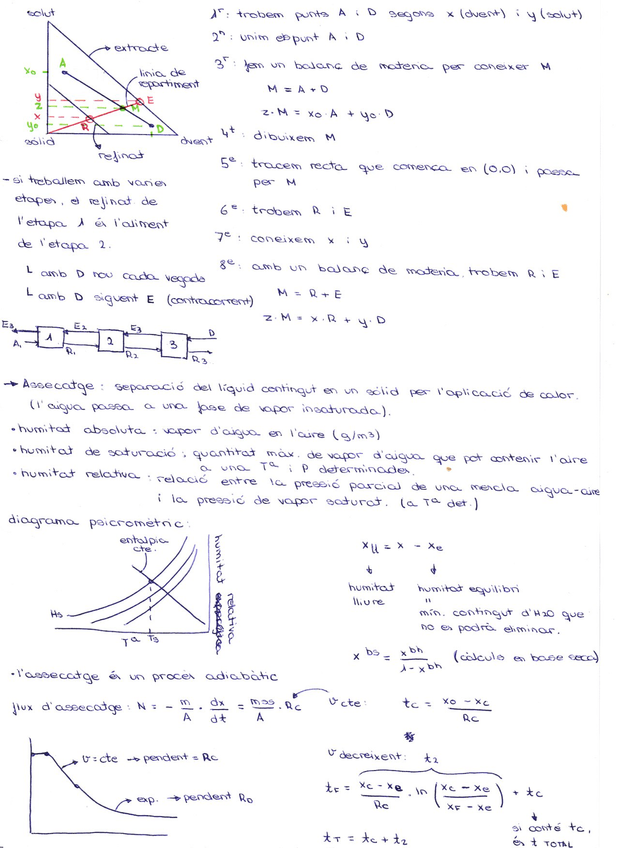 solut
extracte
línia de
repartiment
A
x₀
y
z
x
y₀
E
M
R
D
sòlid
dvent
refinat
1ʳ: trobem punts A i D segons x (dvent) i y (solut)
2ⁿ: unim el punt A i D
3ʳ: fem un balanç de matèria per conèixer M
M = A + D
z·M = x₀·A + y₀·D
4ᵗ: dibuixem M
5ᵉ: tracem recta que comença en (0,0) i passa
per M
6ᵉ: trobem R i E
7ᵉ: coneixem x i y
8ᵉ: amb un balanç de matèria, trobem R i E
M = R + E
z·M = x·R + y·D
- si treballem amb varies
etapes, el refinat de
l'etapa 1 és l'aliment
de l'etapa 2.
L amb D nou cada vegada
L amb D siguent E (contracorrent)
E₃
E₂
E₃
D
A₁
1
2
3
R₁
R₂
R₃
→ Assecatge: separació del líquid contingut en un sòlid per l'aplicació de calor.
(l'aigua passa a una fase de vapor insaturada).
• humitat absoluta: vapor d'aigua en l'aire (g/m³)
• humitat de saturació: quantitat màx. de vapor d'aigua que pot contenir l'aire
a una Tª i P determinades.
• humitat relativa: relació entre la pressió parcial de una mercla aigua-aire
i la pressió de vapor saturat. (a Tª det.)
diagrama psicromètric:
entalpia
cte.
humitat relativa
Hs
Tª
Ts
x_ll = x - xₑ
humitat
lliure
humitat equilibri
"
mín. contingut d'H₂O que
no es podrà eliminar.
x^bs = x^bh / (1 - x^bh) (càlculs en base seca)
• l'assecatge és un procés adiabàtic
flux d'assecatge: N = - m/A · dx/dt = mss/A · Rc
v cte: tc = (x₀ - xc) / Rc
v decreixent: t₂
t_F = (xc - xe) / Rc · ln ((xc - xe) / (x_F - xe)) + tc
si conté tc,
és t TOTAL
t_T = tc + t₂
v = cte → pendent = Rc
exp. → pendent R₀